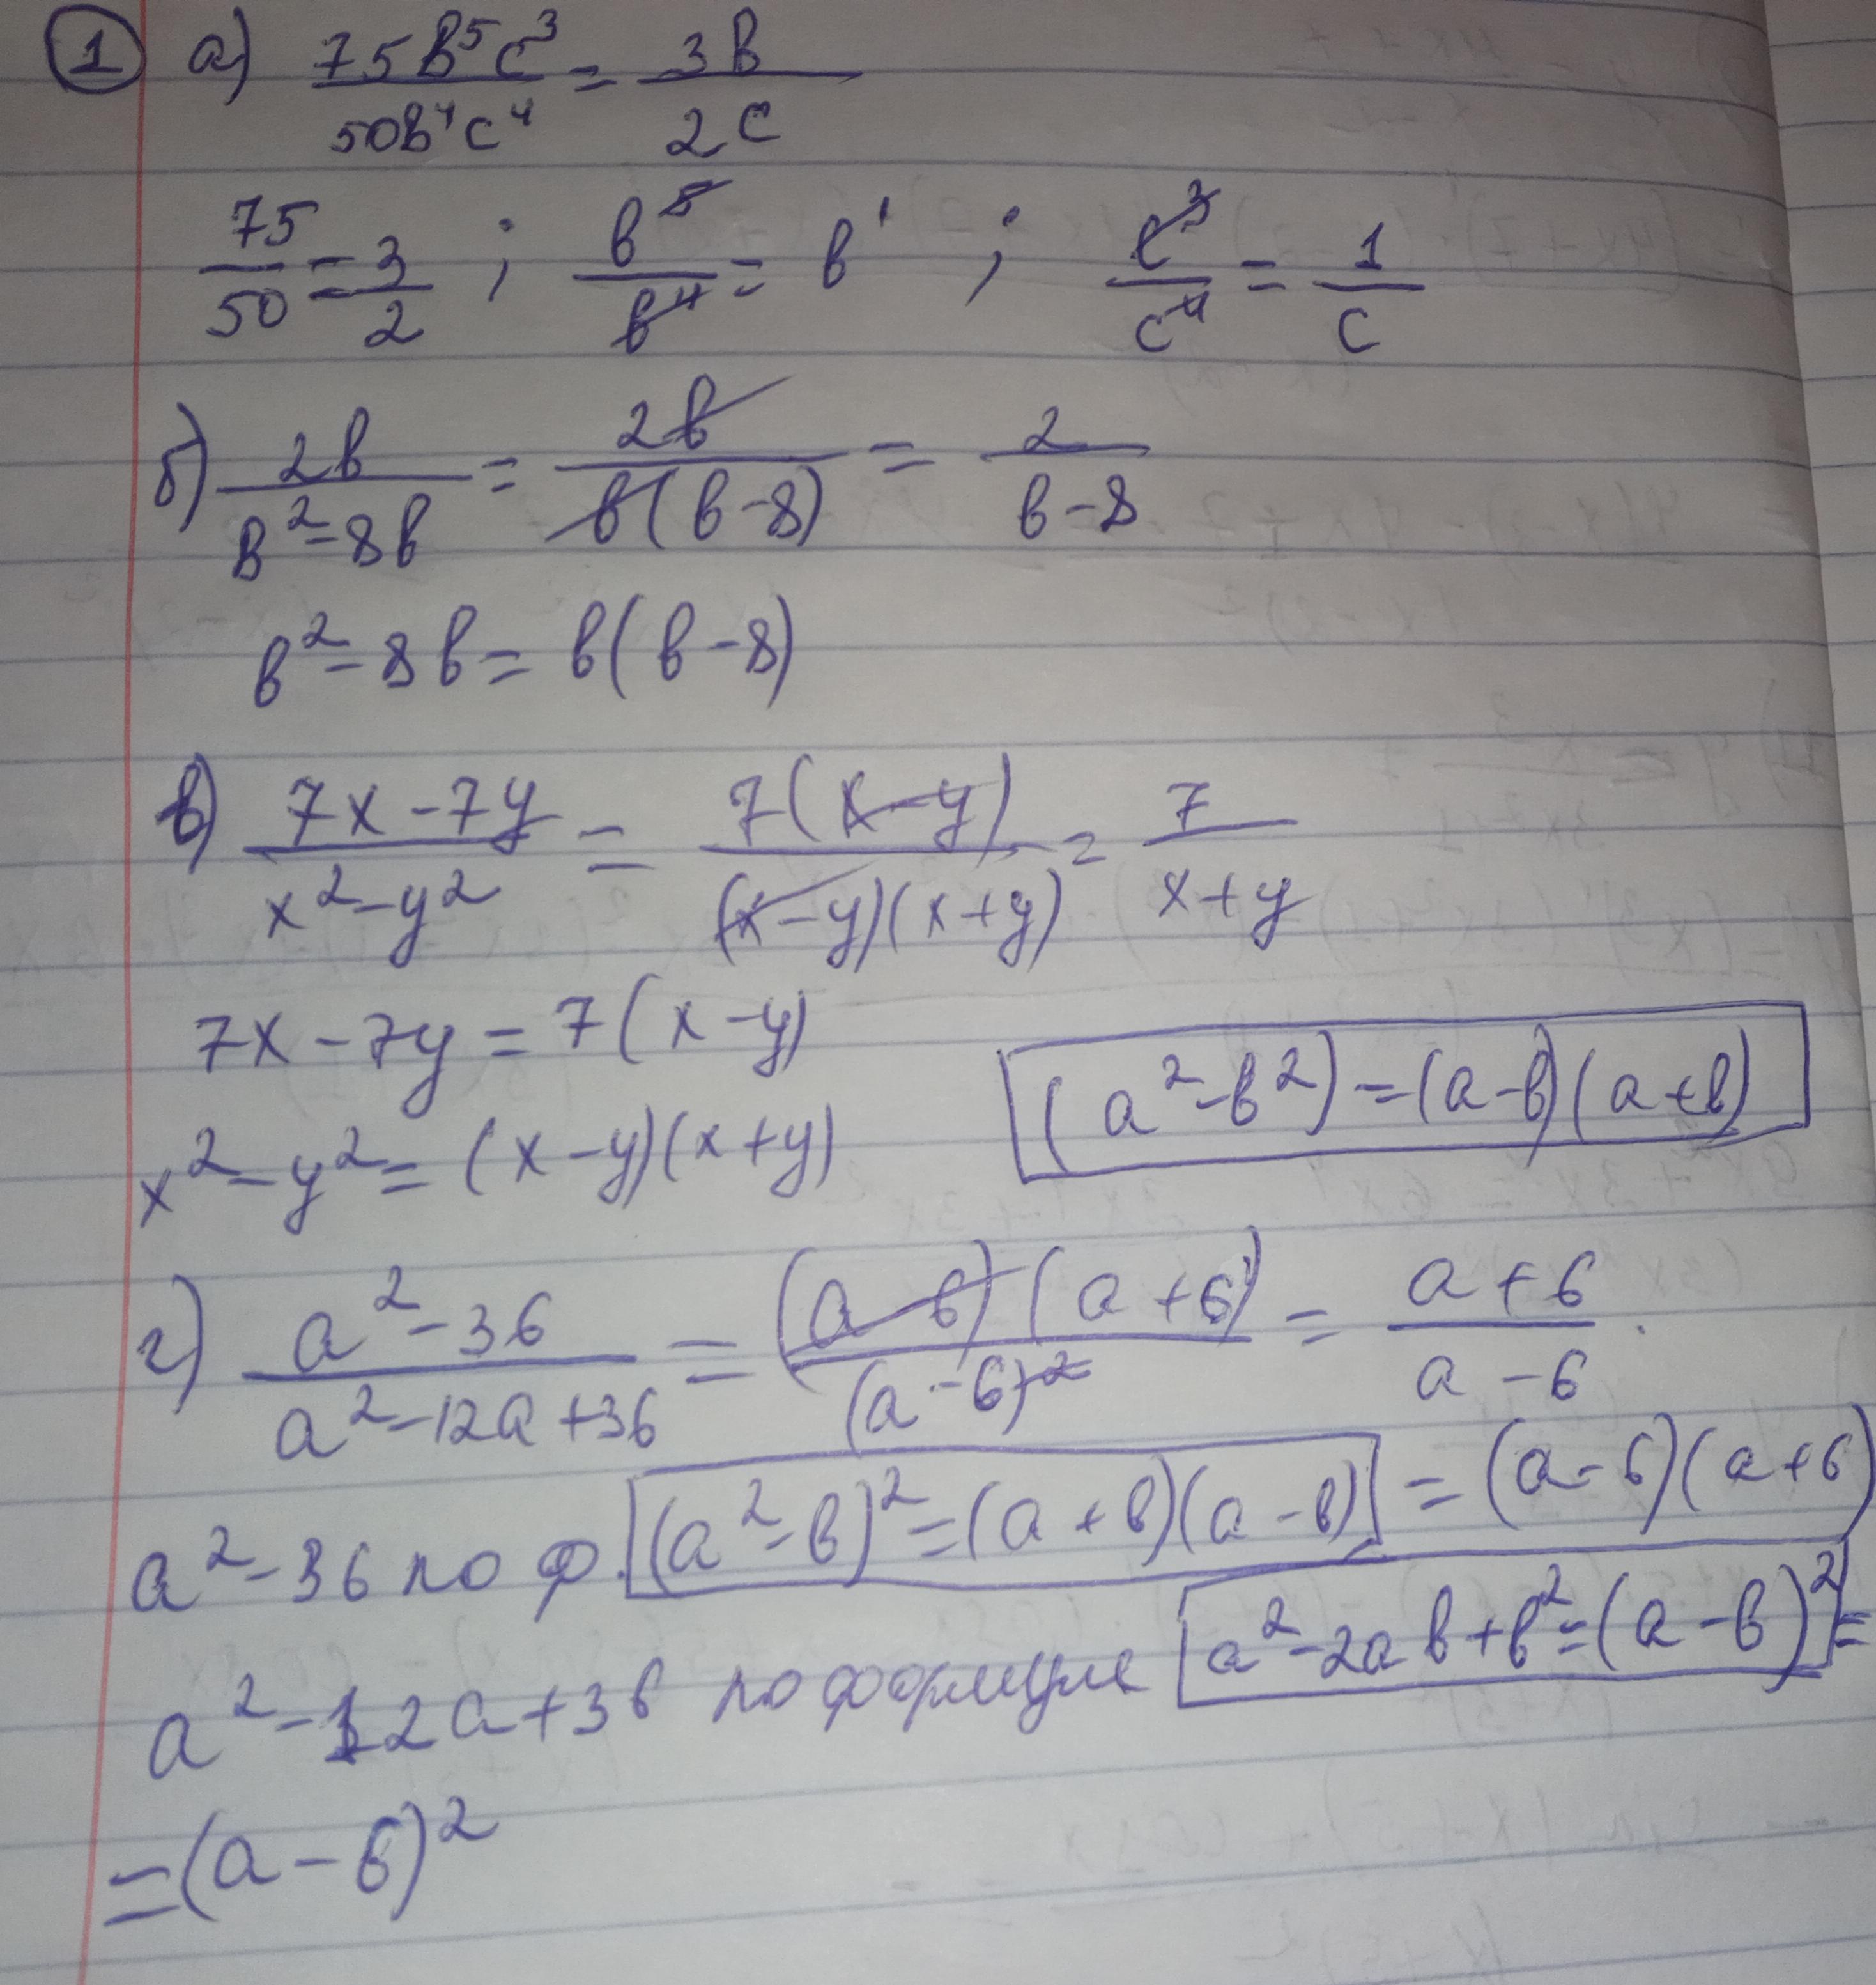 1 а) 75b⁵c³/50b⁴c⁴ = 3b/2c
75/50 = 3/2 ; b⁵/b⁴ = b¹ ; c³/c⁴ = 1/c
б) 2b/b²-8b = 2b/b(b-8) = 2/b-8
b²-8b = b(b-8)
в) 7x-7y/x²-y² = 7(x-y)/(x-y)(x+y) = 7/x+y
7x-7y = 7(x-y)
(a²-b²) = (a-b)(a+b)
x²-y² = (x-y)(x+y)
г) a²-36/a²-12a+36 = (a-6)(a+6)/(a-6)² = a+6/a-6.
a²-36 по ф. (a²-b)² = (a+b)(a-b) = (a-6)(a+6)
a²-12a+36 по формуле a²-2ab+b² = (a-b)² =
= (a-6)²